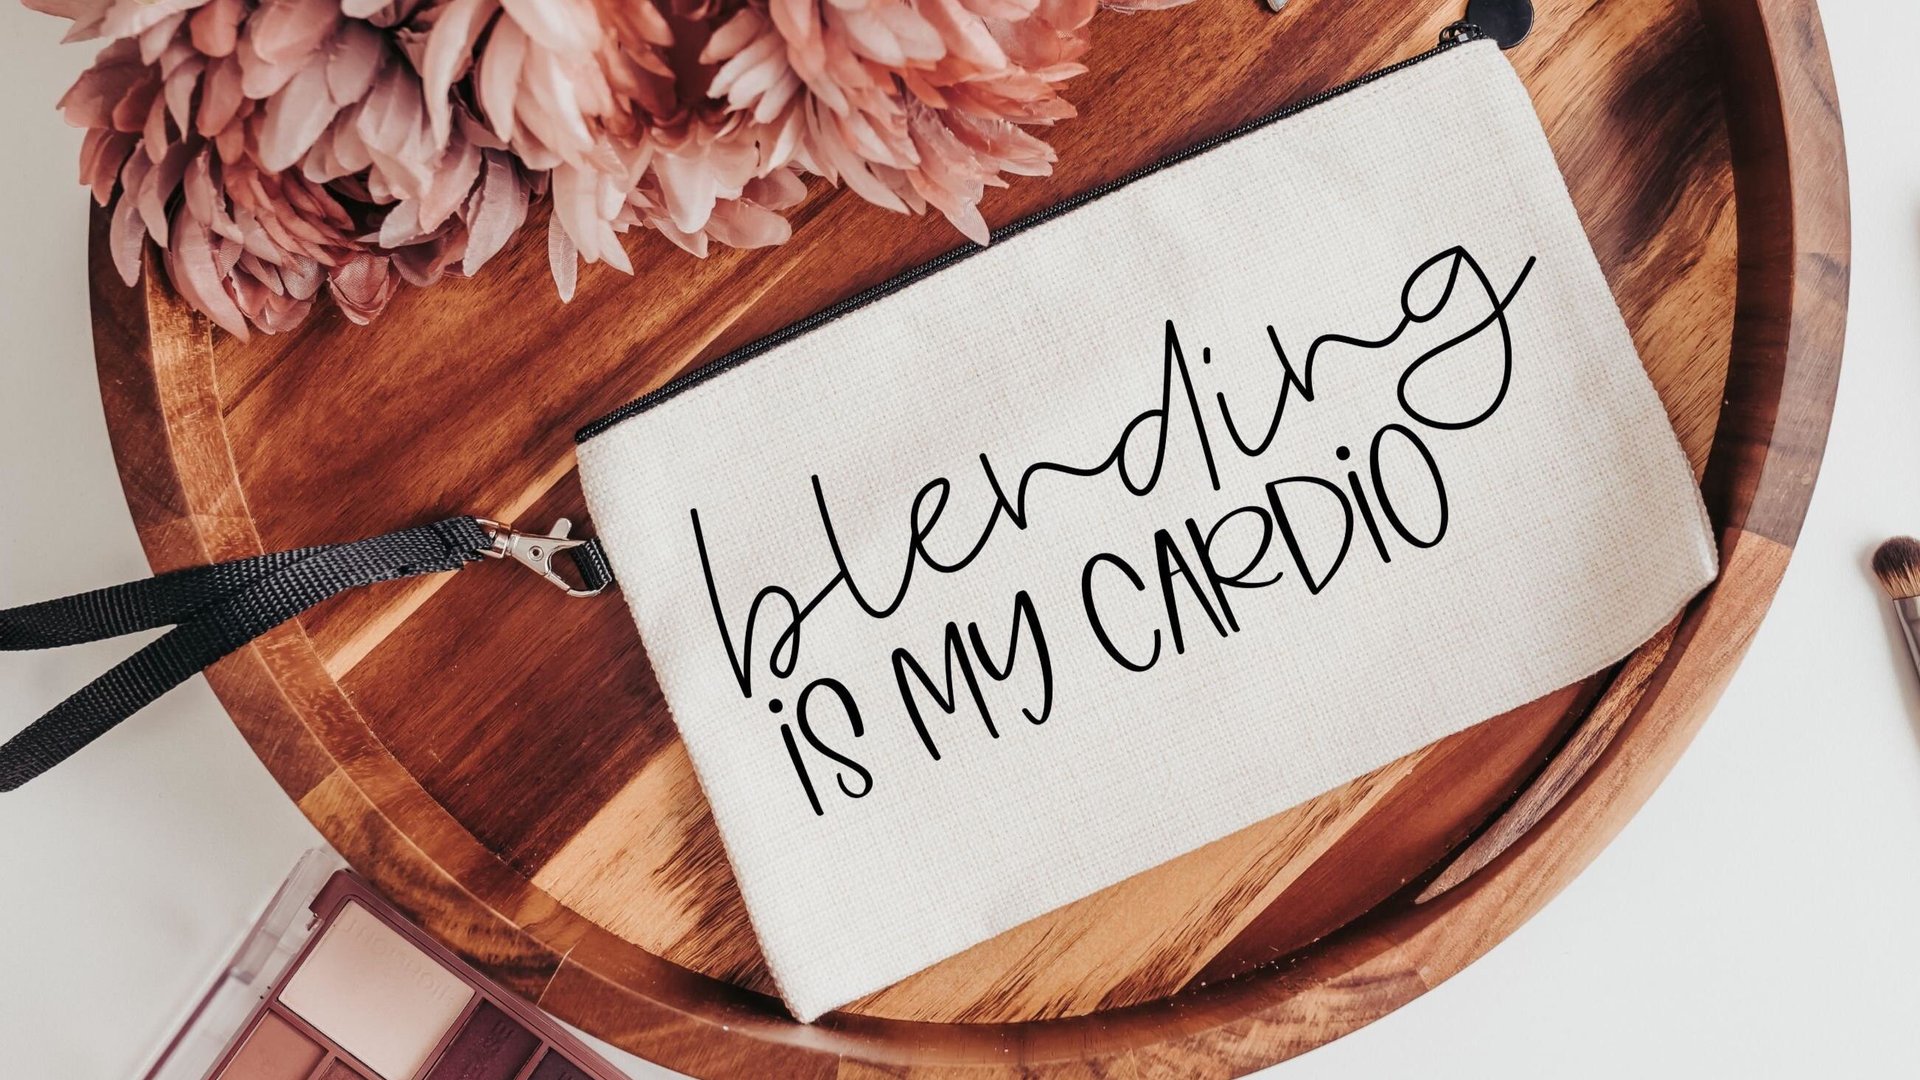 blending
is MY CARDiO